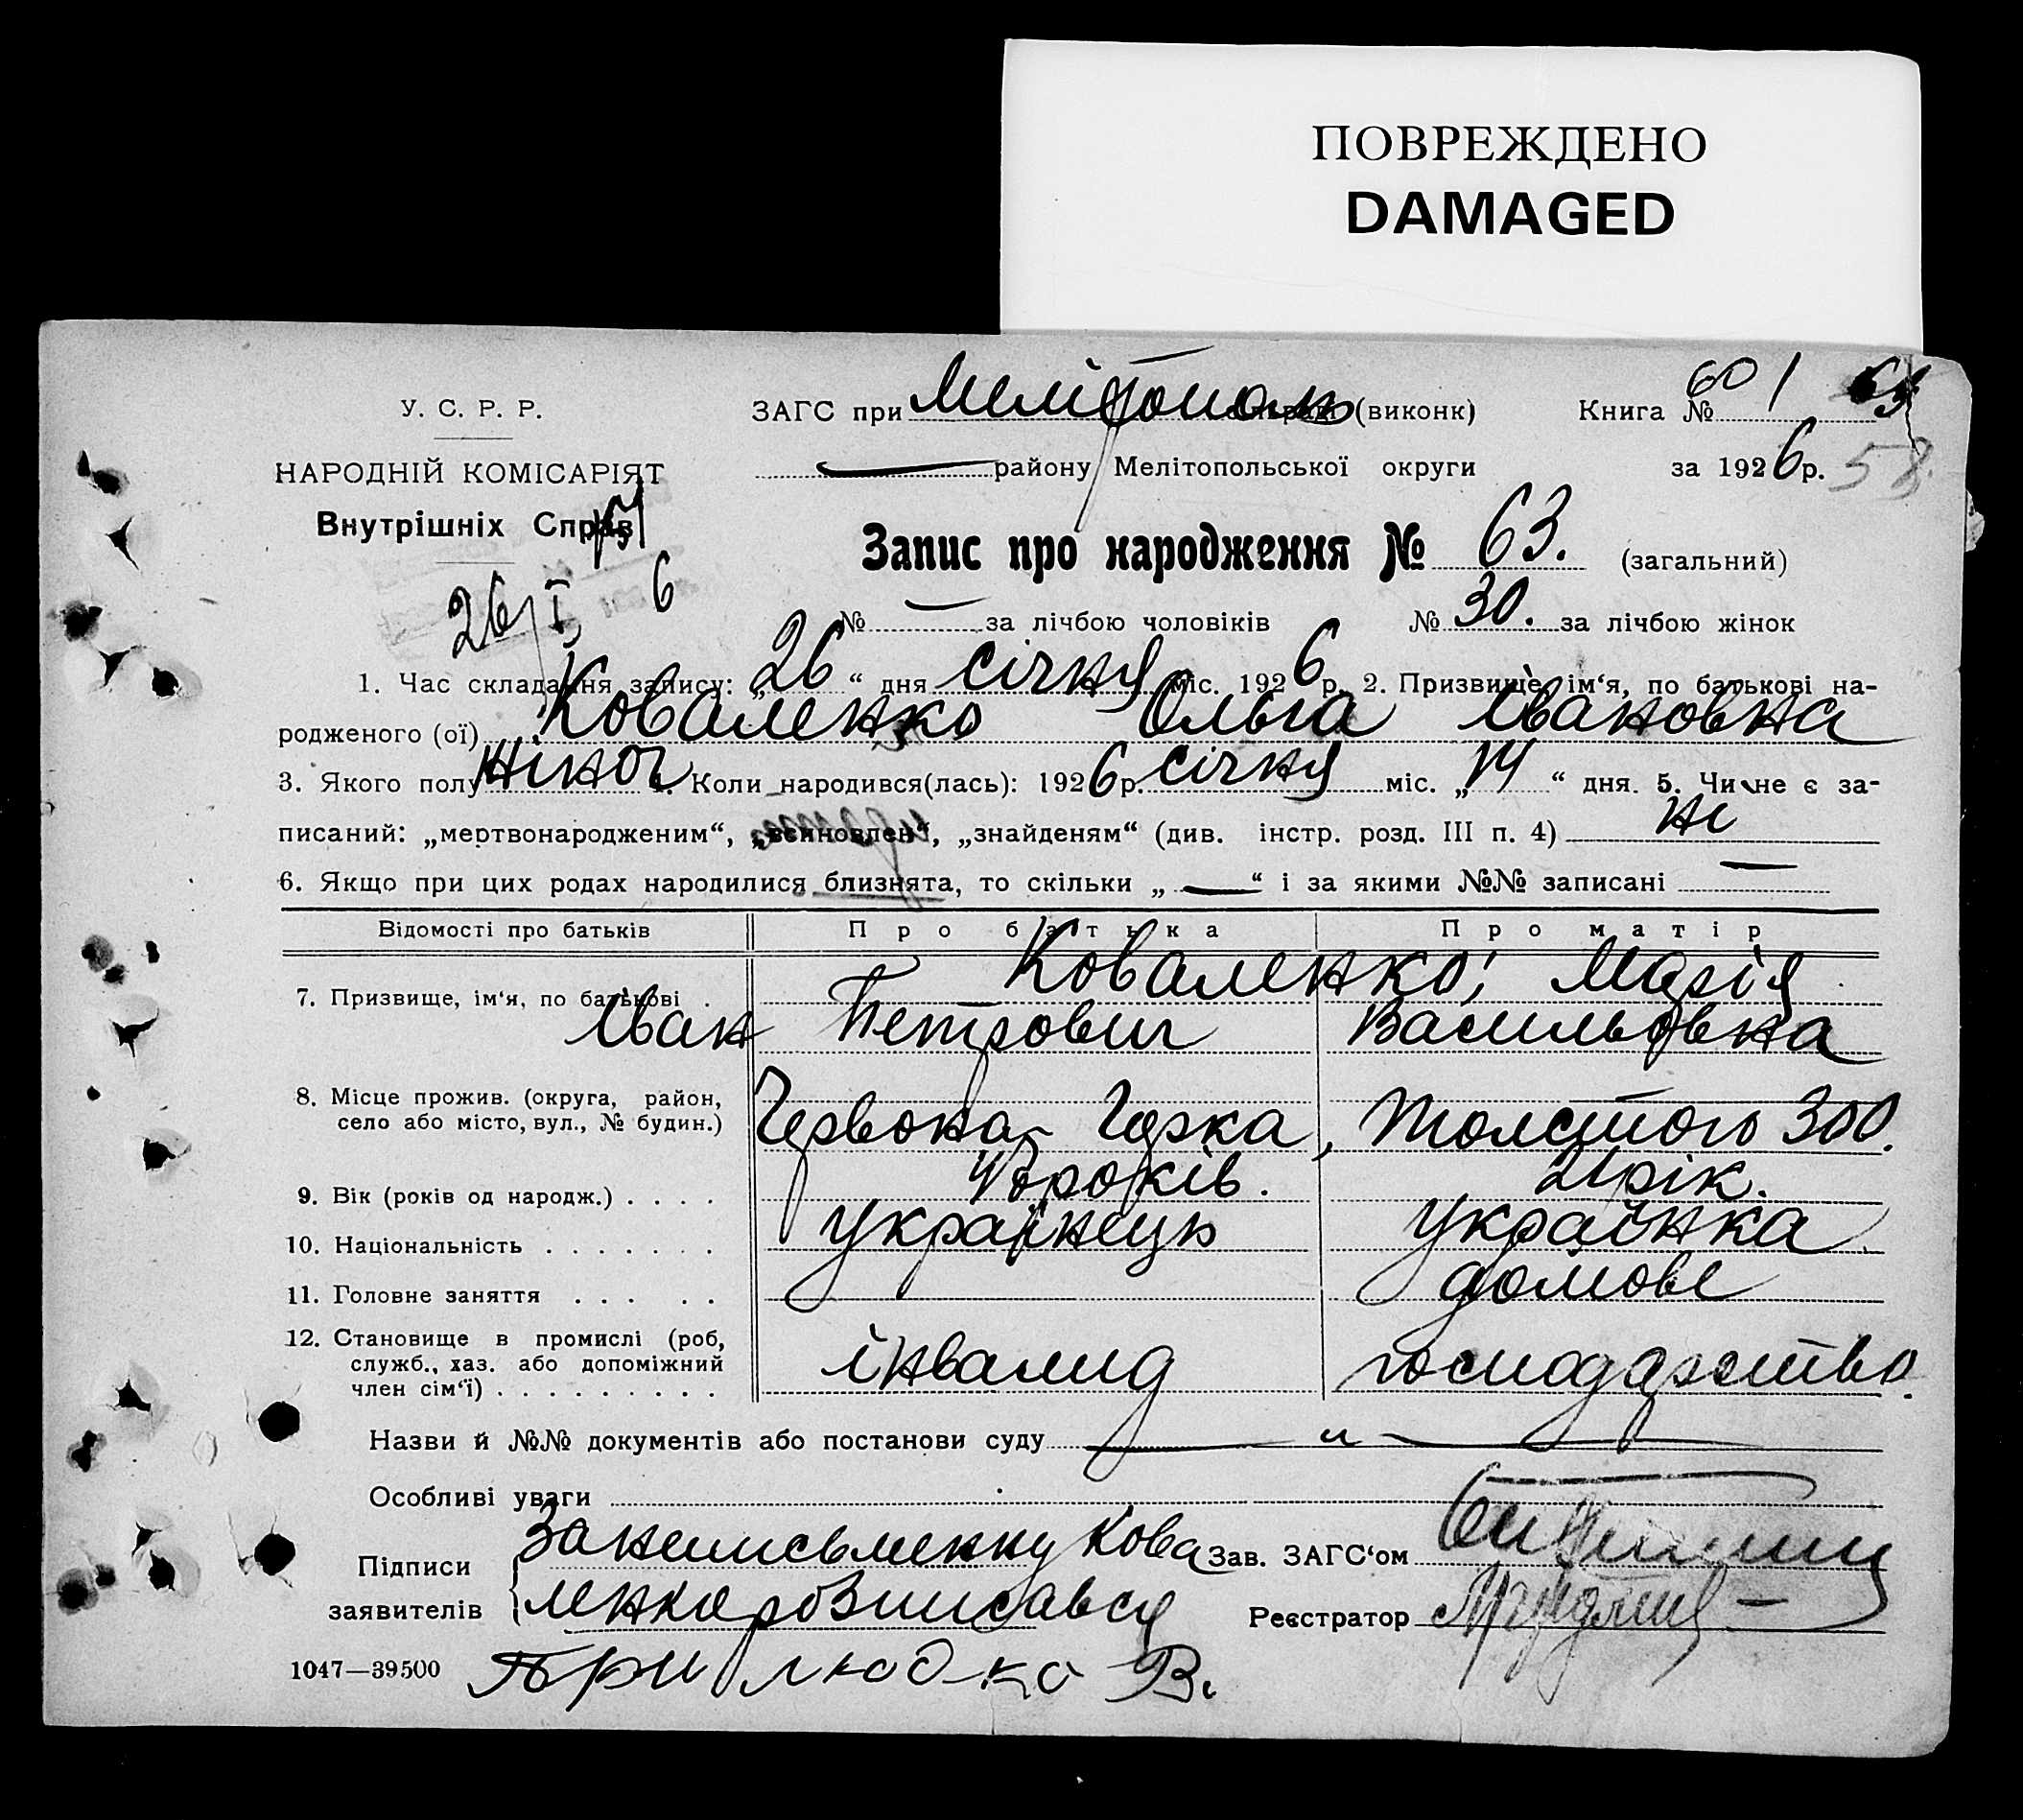 ПОВРЕЖДЕНО
DAMAGED
У. С. Р. Р.
НАРОДНІЙ КОМІСАРІЯТ
Внутрішніх Справ
26/I 6
ЗАГС при Мелітополь (виконк)
Книга № 601
району Мелітопольської округи
за 1926 р. 58
Запис про народження № 63. (загальний)
№ — за лічбою чоловіків № 30. за лічбою жінок
1. Час складання запису: „26“ дня січня міс. 1926 р. 2. Призвище, ім‘я, по батькові на-
родженого (ої) Коваленко Ольга Івановна
3. Якого полу жіноч 4. Коли народився(лась): 1926 р. січня міс. „14“ дня. 5. Чи не є за-
писаний: „мертвонародженим“, „всиновлен“, „знайденям“ (див. інстр. розд. III п. 4) не
6. Якщо при цих родах народилися близнята, то скільки „—“ і за якими №№ записані —
Відомості про батьків Про батька Про матір
7. Призвище, ім‘я, по батькові . Коваленко; Марія
Іван Петрович Васильовна
8. Місце прожив. (округа, район,
село або місто, вул., № будин.) Червона Гірка, Толстого 300.
9. Вік (років од народж.) . . . . років. рік.
10. Національність . . . . . . . українець українка
11. Головне заняття . . . . . домове
12. Становище в промислі (роб,
служб., хаз. або допоміжний
член сім‘ї) . . . . . . . . . . інвалид господарство.
Назви й №№ документів або постанови суду — „ —
Особливі уваги
Підписи
заявителів
За неписьменну Кова
ленко розписався
Прилюдко В.
Зав. ЗАГС‘ом
Реєстратор
1047—39500